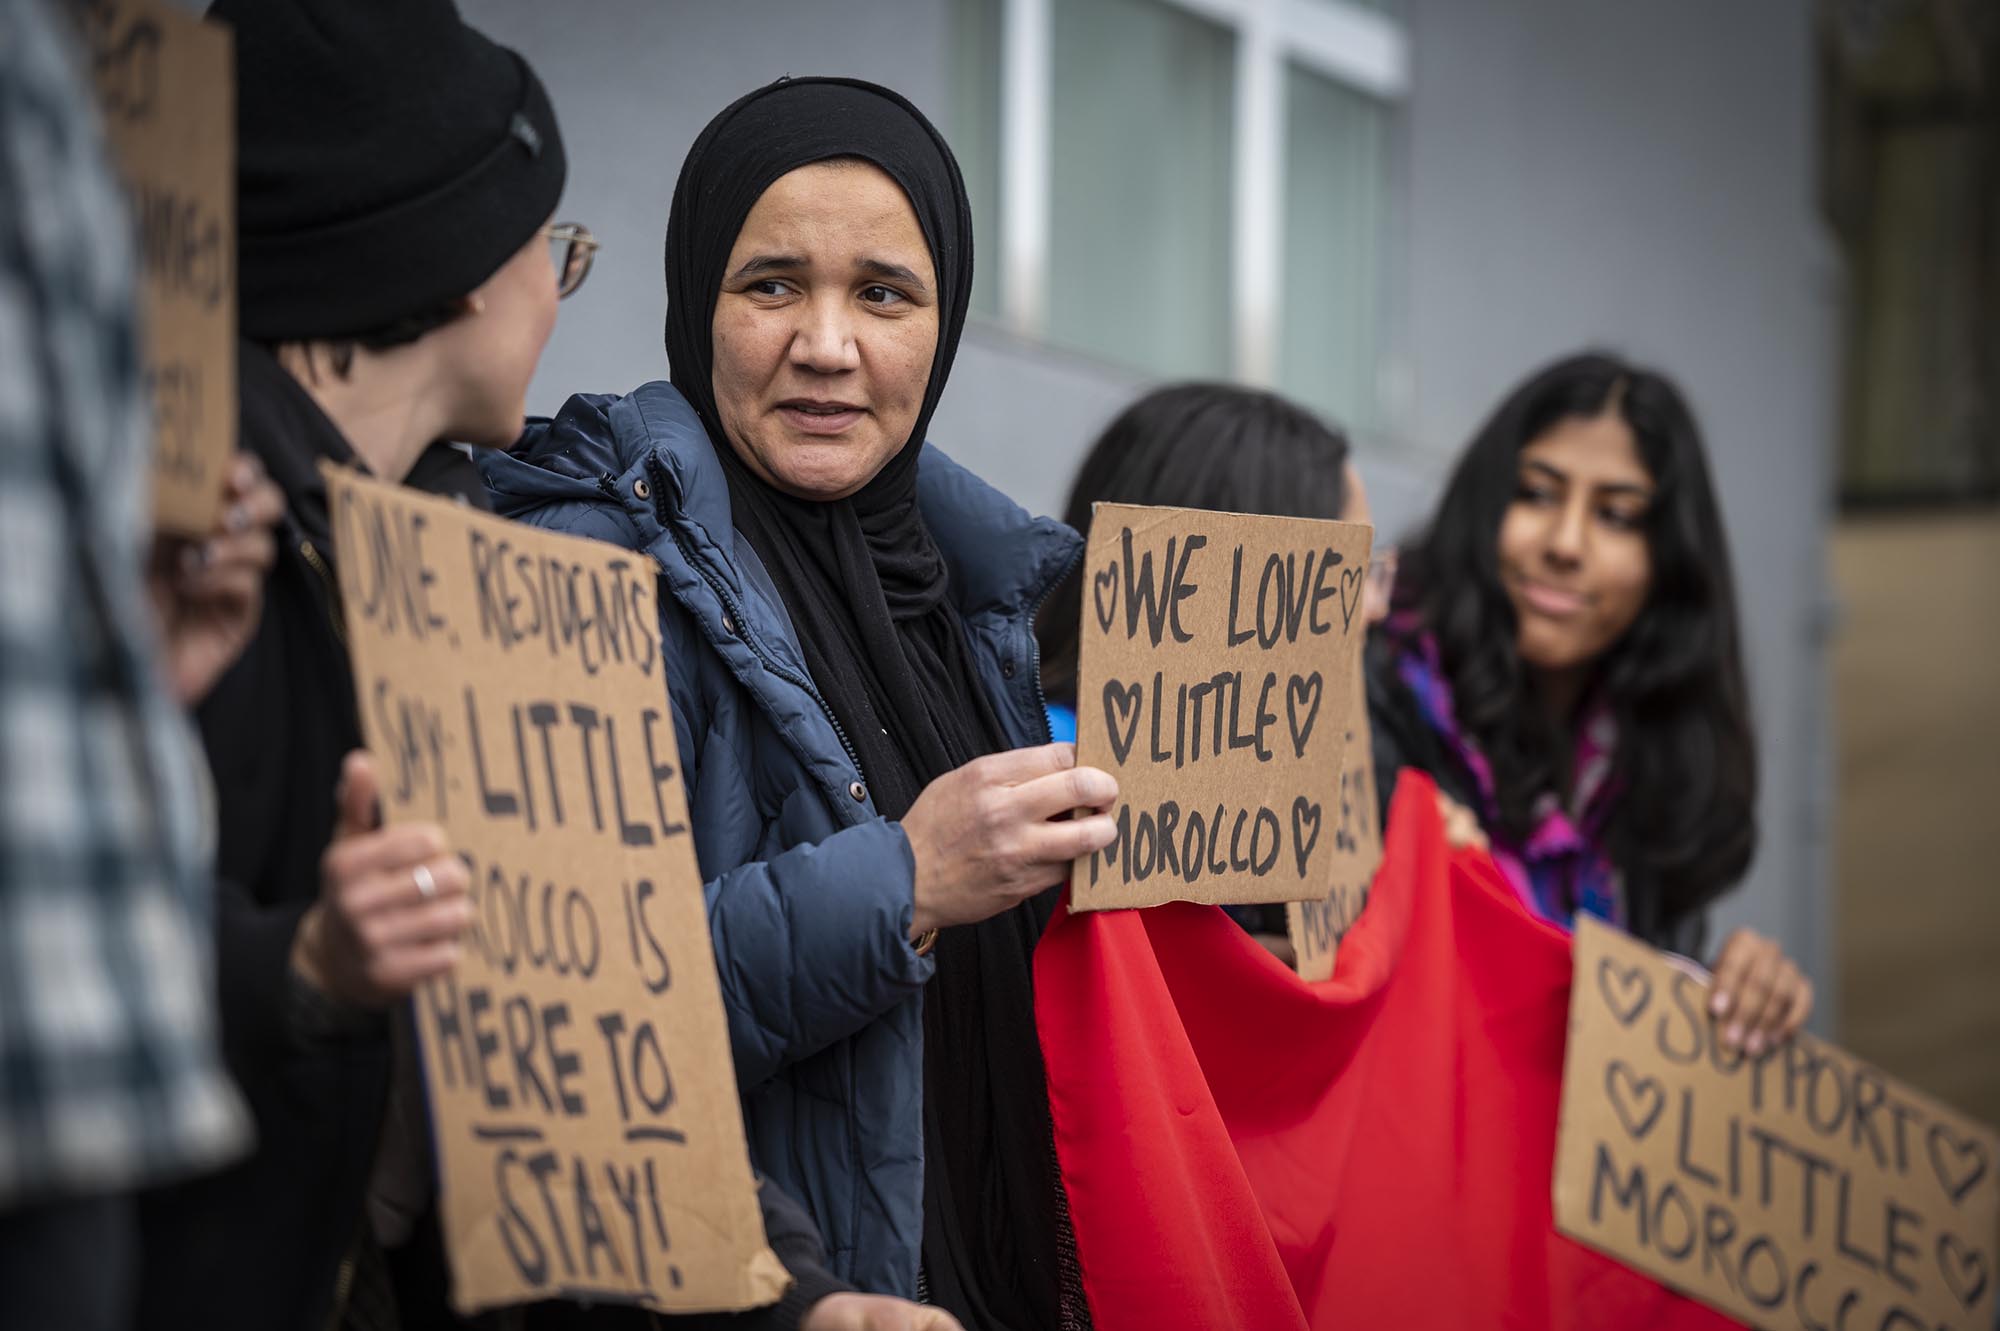 ONE, RESIDENTS
SAY: LITTLE
ROCCO IS
HERE TO
STAY!
♡WE LOVE♡
♡LITTLE♡
MOROCCO♡
♡SUPPORT♡
♡LITTLE♡
MOROCCO